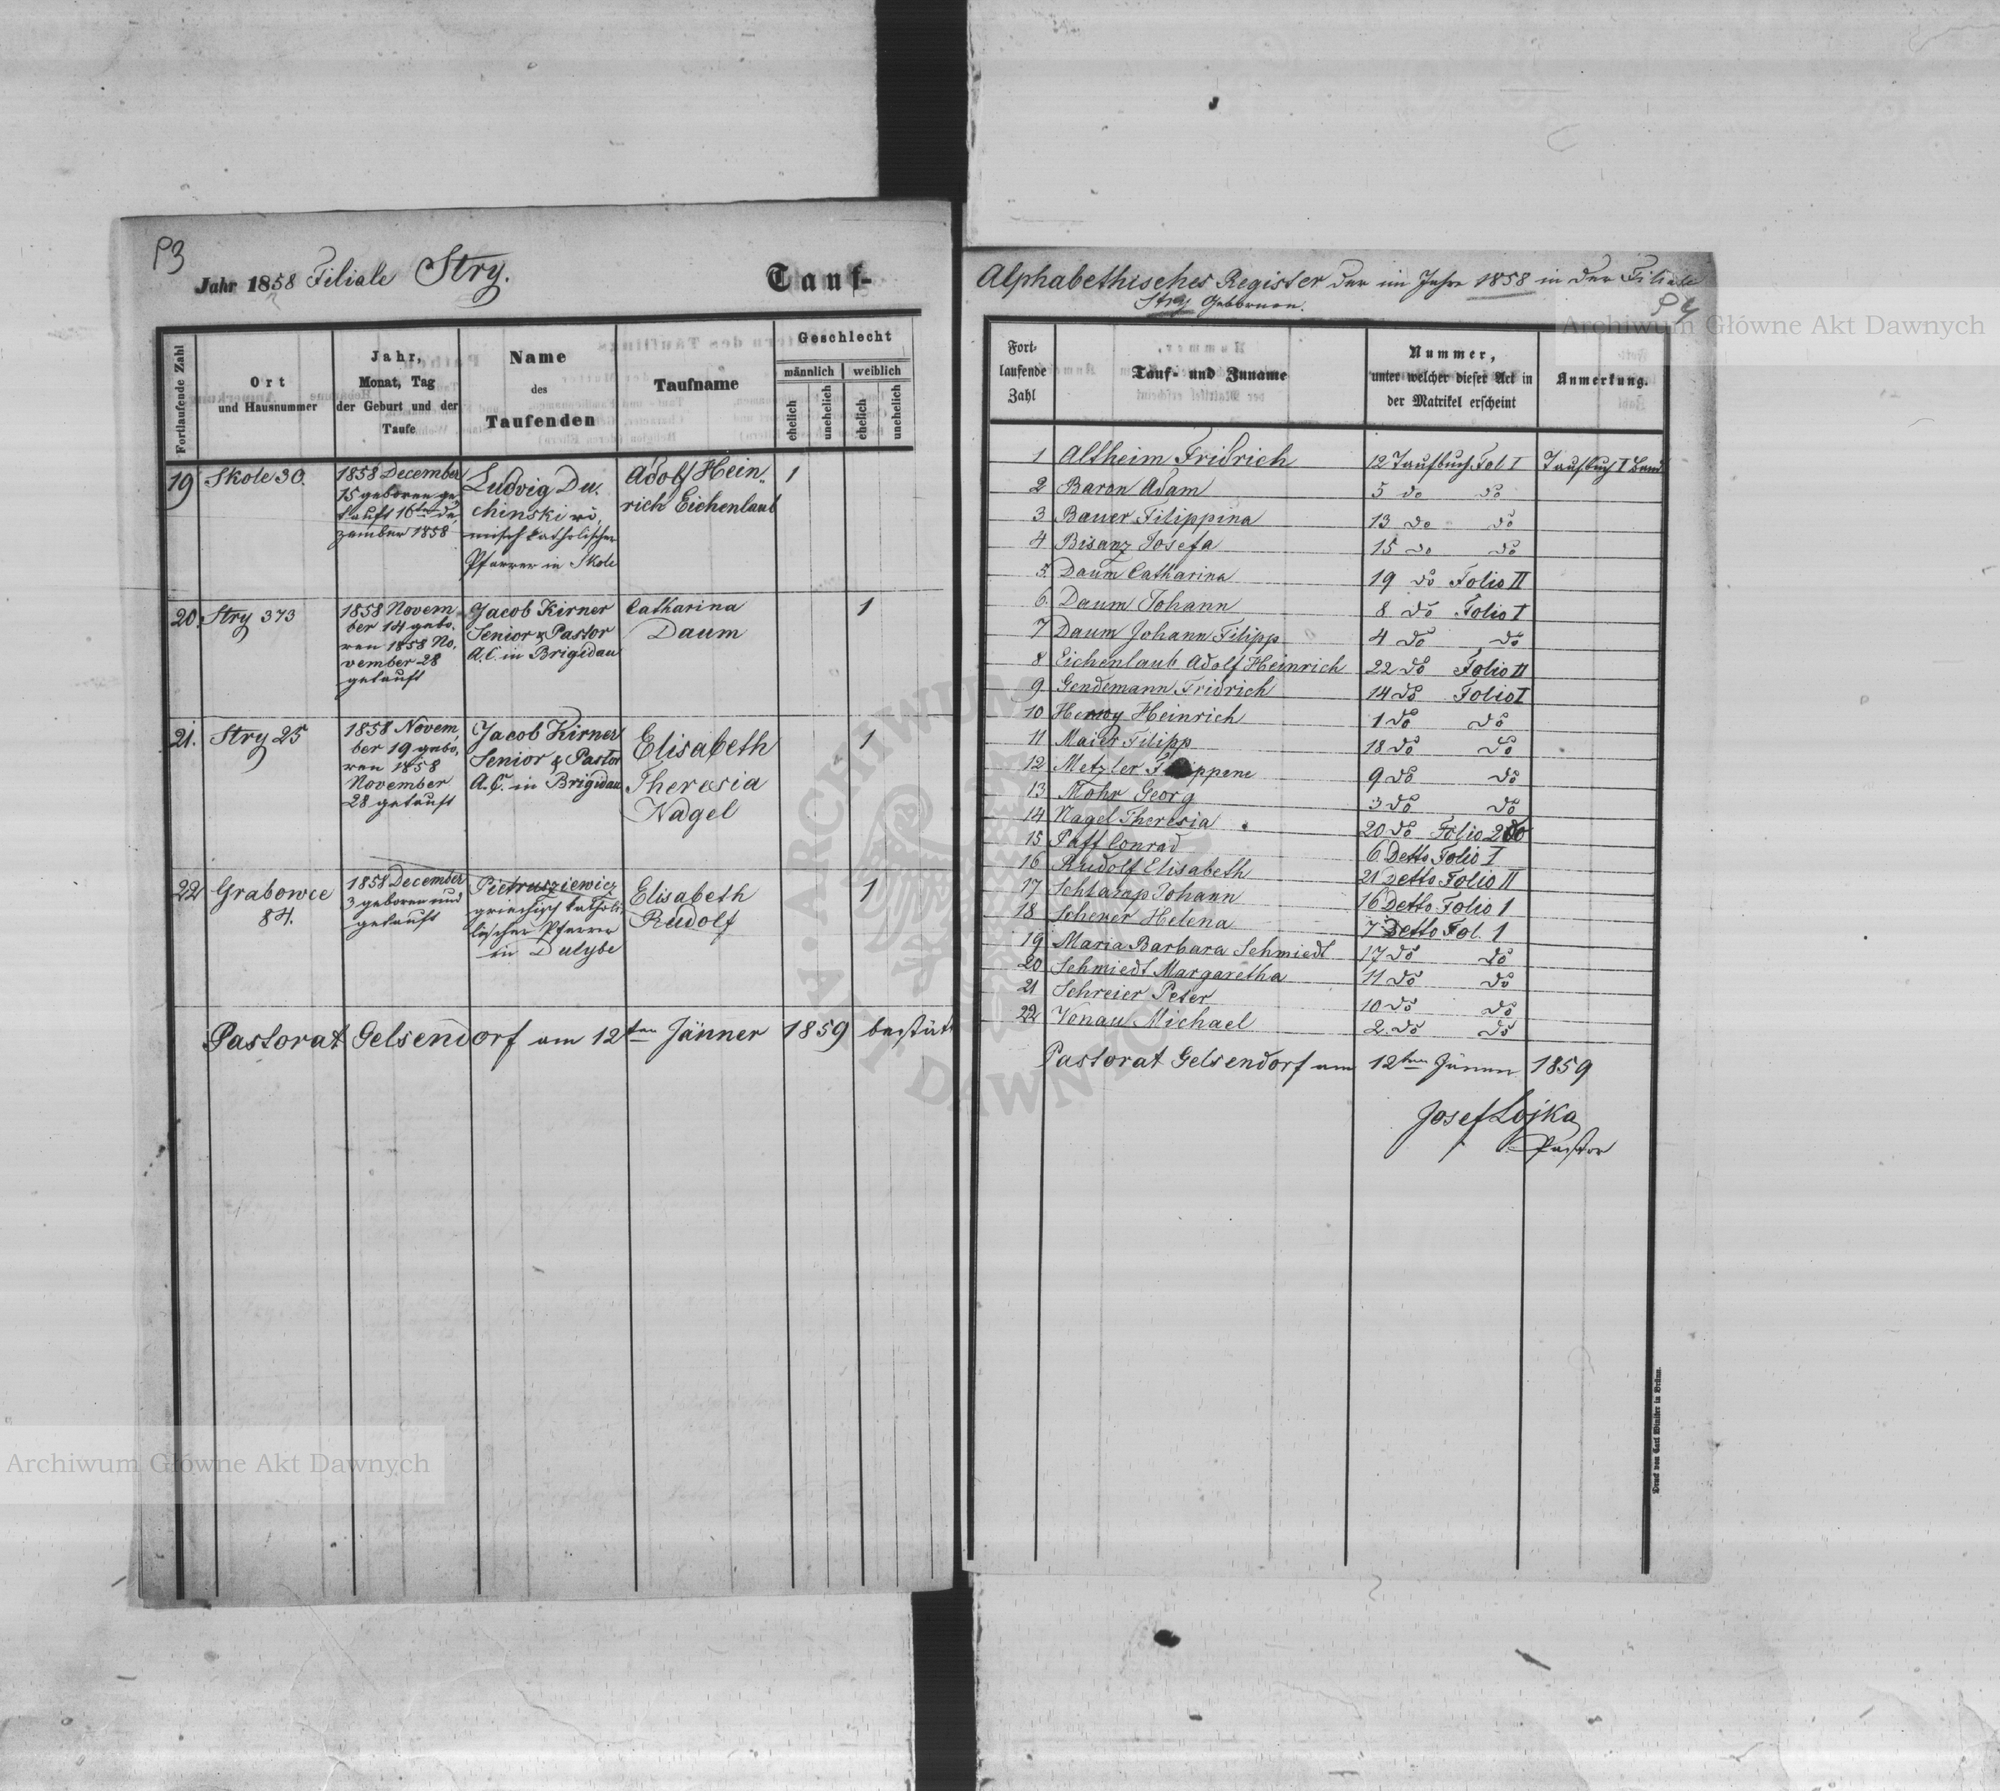 P3
Jahr 1858 Filiale Stry.
Tauf-
Fortlaufende Zahl
Ort
und Hausnummer
Jahr,
Monat, Tag
der Geburt und der
Taufe
Name
des
Taufenden
Taufname
Geschlecht
männlich
weiblich
ehelich
unehelich
ehelich
unehelich
19
Skole 30.
1858 December
15 geboren ge-
tauft 16ten De-
zember 1858
Ludvig Du-
chinski rö-
misch katholischer
Pfarrer in Skole
Adolf Hein-
rich Eichenlaub
1
20.
Stry 373
1858 Novem
ber 14 gebo-
ren 1858 No-
vember 28
getauft
Jacob Kirner
Senior & Pastor
A.C. in Brigidau
Catharina
Daum
1
21.
Stry 25
1858 Novem
ber 19 gebo-
ren 1858
November
28 getauft
Jacob Kirner
Senior & Pastor
A.C. in Brigidau
Elisabeth
Theresia
Nagel
1
22
Grabowce
84.
1858 December
3 geboren und
getauft
Pietrusziewicz
griechisch katholi-
lischer Pfarrer
in Dulybe
Elisabeth
Rudolf
1
Pastorat Gelsendorf am 12ten Jänner 1859 bestät
Alphabethisches Register der im Jahre 1858 in der Filiale
Stry Gebornen.
Fort-
laufende
Zahl
Tauf- und Zuname
Nummer,
unter welcher dieser Act in
der Matrikel erscheint
Anmerkung.
1 Altheim Fridrich 12 Taufbuch Fol I Taufbuch I Band
2 Baron Adam 5 do do
3 Bauer Filippina 13 do do
4 Bisanz Josefa 15 do do
5. Daum Catharina 19 do Folio II
6. Daum Johann 8 do Folio I
7 Daum Johann Filipp 4 do do
8 Eichenlaub Adolf Heinrich 22 do Folio II
9 Gendemann Fridrich 14 do Folio I
10 Heinrich 1 do do
11 Maier Filipp 18 do do
12 Metzler 9 do do
13 Mohr Georg 3 do do
14 Nagel Theresia 20 do Folio
15 Paff Conrad 6 Detto Folio I
16 Rudolf Elisabeth 21 Detto Folio II
17 Schlamp Johann 16 Detto Folio 1
18 Scherer Helena 7 Detto Fol. 1
19 Maria Barbara Schmiedt 17 do do
20 Schmiedt Margaretha 11 do do
21 Schreier Peter 10 do do
22 Vonau Michael 2. do do
Pastorat Gelsendorf am 12ten Jänner 1859
Josef Lojka
Pastor
Druck von Carl Winiker in Brünn.
Archiwum Główne Akt Dawnych
Archiwum Główne Akt Dawnych